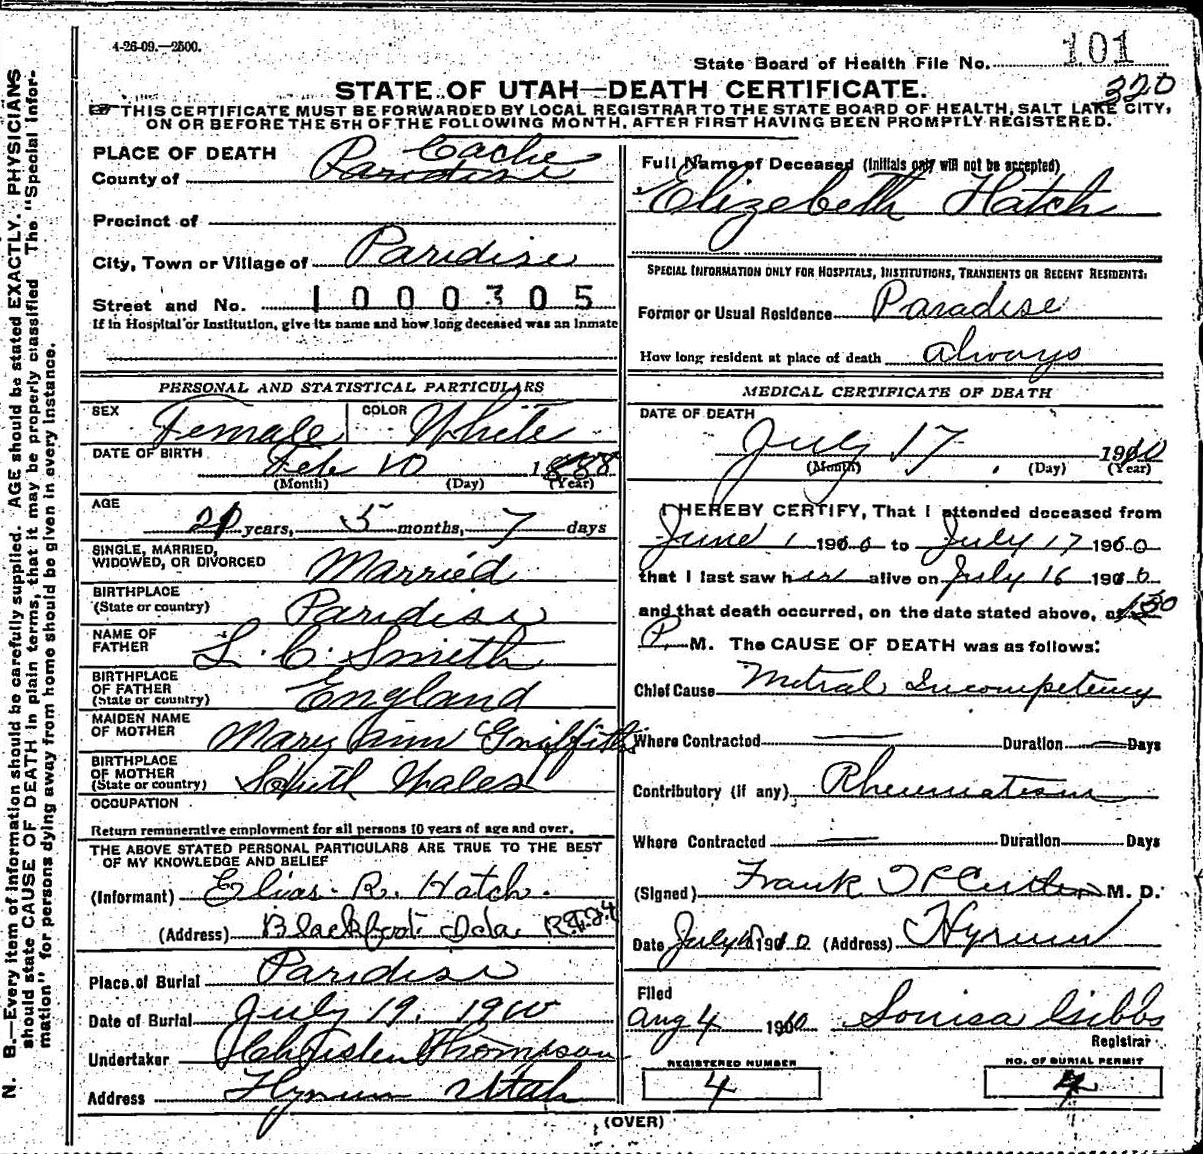 4-26-09.—2500.
State Board of Health File No. 101
320
STATE OF UTAH—DEATH CERTIFICATE.
THIS CERTIFICATE MUST BE FORWARDED BY LOCAL REGISTRAR TO THE STATE BOARD OF HEALTH, SALT LAKE CITY,
ON OR BEFORE THE 5TH OF THE FOLLOWING MONTH, AFTER FIRST HAVING BEEN PROMPTLY REGISTERED.
PLACE OF DEATH
Cache
County of Paradise
Precinct of
City, Town or Village of Paridise
Street and No. 1000305
If in Hospital or Institution, give its name and how long deceased was an inmate
PERSONAL AND STATISTICAL PARTICULARS
SEX Female COLOR White
DATE OF BIRTH Feb 10 1888
(Month) (Day) (Year)
AGE
years, 5 months, 7 days
SINGLE, MARRIED,
WIDOWED, OR DIVORCED Married
BIRTHPLACE
(State or country) Paridise
NAME OF
FATHER L. C. Smith
BIRTHPLACE
OF FATHER
(State or country) England
MAIDEN NAME
OF MOTHER Mary Ann Griffiths
BIRTHPLACE
OF MOTHER
(State or country) South Wales
OCCUPATION
Return remunerative employment for all persons 10 years of age and over.
THE ABOVE STATED PERSONAL PARTICULARS ARE TRUE TO THE BEST
OF MY KNOWLEDGE AND BELIEF
(Informant) Elias R. Hatch.
(Address) Blackfoot Ida.
Place of Burial Paridise
Date of Burial July 19. 1910
Undertaker Thompson
Address Hyrum Utah
Full Name of Deceased (Initials only will not be accepted)
Elizebeth Hatch
SPECIAL INFORMATION ONLY FOR HOSPITALS, INSTITUTIONS, TRANSIENTS OR RECENT RESIDENTS:
Former or Usual Residence Paradise
How long resident at place of death always
MEDICAL CERTIFICATE OF DEATH
DATE OF DEATH
July 17 1910
(Month) (Day) (Year)
I HEREBY CERTIFY, That I attended deceased from
June 1 1910 to July 17 1910
that I last saw her alive on July 16 1910
and that death occurred, on the date stated above, at 1 30
P. M. The CAUSE OF DEATH was as follows:
Chief Cause Mitral Incompetency
Where Contracted — Duration — Days
Contributory (if any) Rheumatism
Where Contracted — Duration Days
(Signed) Frank M. D.
Date July 1910 (Address) Hyrum
Filed
Aug 4 1910 Louisa Gibbs
Registrar
REGISTERED NUMBER
4
NO. OF BURIAL PERMIT
4
(OVER)
N. B.—Every item of information should be carefully supplied. AGE should be stated EXACTLY. PHYSICIANS
should state CAUSE OF DEATH in plain terms, that it may be properly classified The "Special Infor-
mation" for persons dying away from home should be given in every instance.